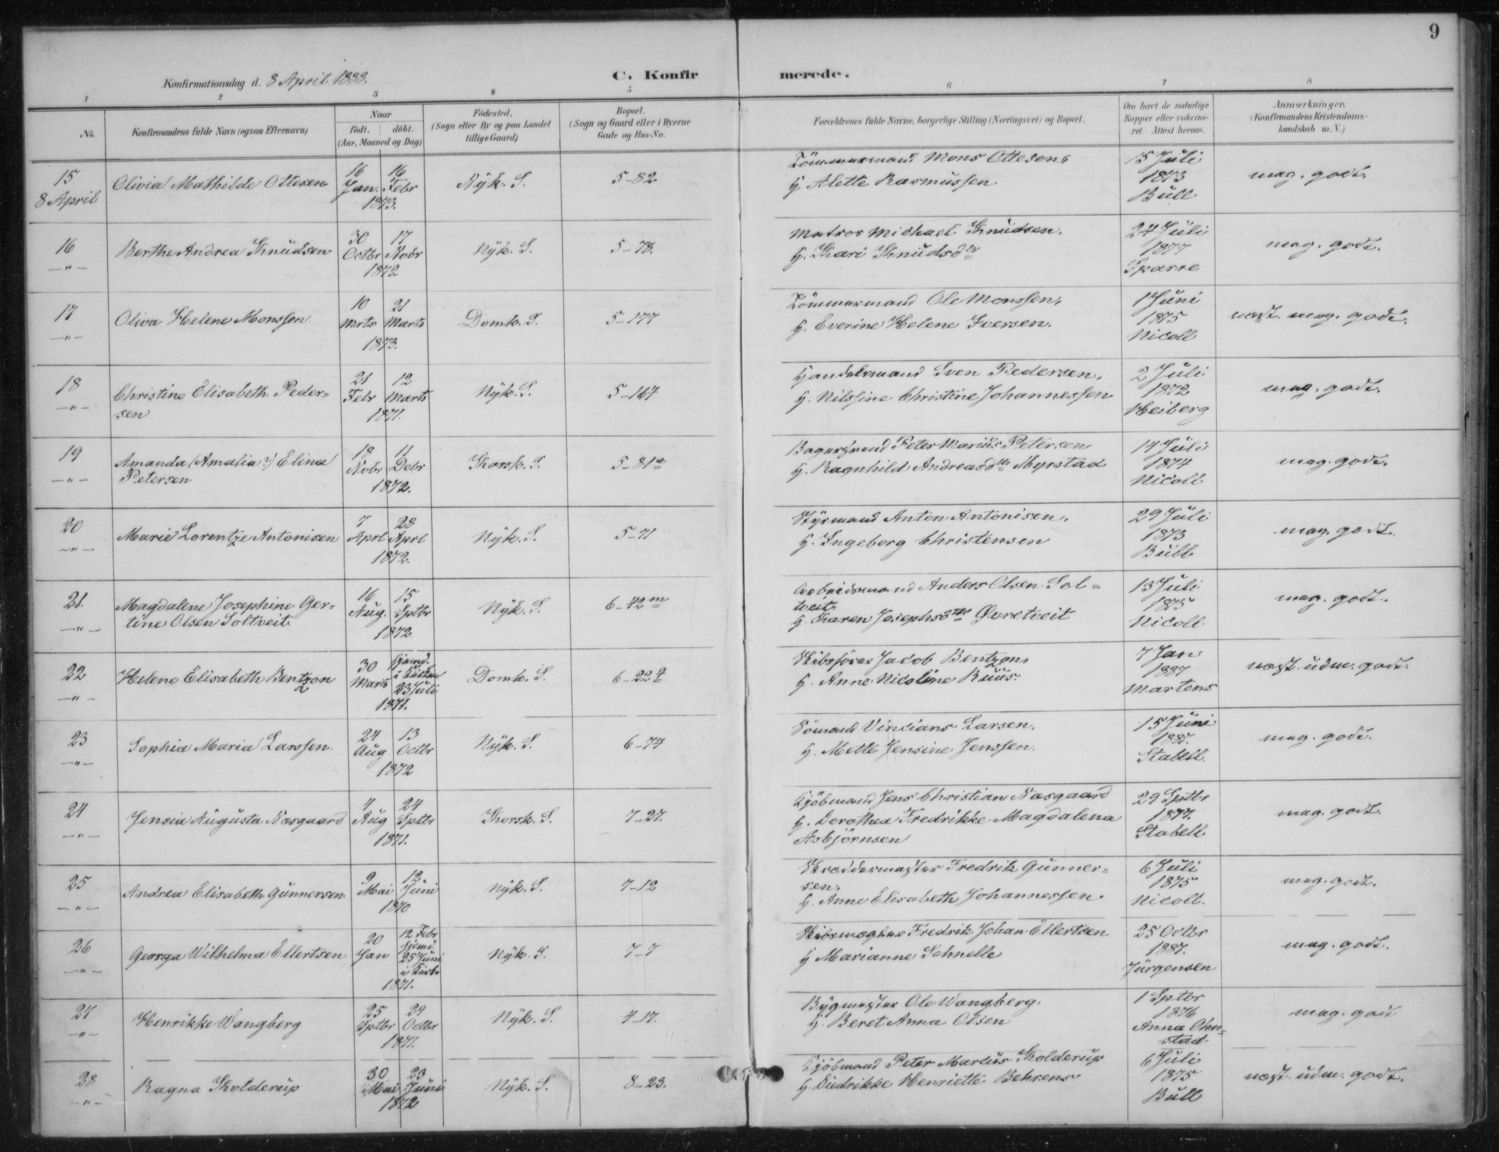 9
Konfirmationsdag d. 8 April 1888.
C. Konfirmerede.
1 2 3 4 5 6 7 8
No.
Konfirmandens fulde Navn (ogsaa Efternavn)
Naar
født. døbt.
(Aar, Maaned og Dag)
Fødested.
(Sogn eller By og paa Landet
tillige Gaard)
Bopæl.
(Sogn og Gaard eller i Byerne
Gade og Hus-No.
Forældrenes fulde Navne, borgerlige Stilling (Næringsvei) og Bopæl.
Om havt de naturlige
Kopper eller vaksine-
ret. Attest herom.
Anmærkninger.
(Konfirmandens Kristendoms-
kundskab m. V.)
15
8 April
Olivia Mathilde Ottesen
16 Jan. 16 Febr
1873.
Nÿk. S.
5-82
Tömmermand Mons Ottesen,
H. Alette Rasmussen
15 Juli
1873
Büll
mag. godt.
16
-"-
Berthe Andrea Knüdsen
30 Octbr 17 Novbr
1872
Nÿk. S.
5-78.
Matros Michael Knüdsen,
H. Kari Knüdsdtr
24 Juli
1877
Sparre
mag. godt.
17
-"-
Oliva Helene Monssen
10 Marts 21 Marts
1873.
Domk. S.
5-177
Tömmermand Ole Monssen,
H. Everine Helene Iversen.
1 Juni
1875
Nicoll
næst. mag. godt.
18
-"-
Christine Elisabeth Peder-
sen
21 Febr 12 Marts
1871.
Nÿk. S.
5-167
Handelsmand Sven Pedersen,
H. Nilssine Christine Johannessen
2 Juli
1872
Heiberg
mag. godt.
19
-"-
Amanda (Amalia?) Elina
Petersen
18 Novbr 11 Debr
1872.
Korsk. S.
5-81a
Bagersvend Peter Marius Petersen
H. Ragnhild Andreasdtr Myrstad
14 Juli
1874
Nicoll
mag. godt.
20
-"-
Marie Lorentze Antonisen
7 Aprl 28 Aprl
1872.
Nÿk. S.
5-71
Stÿrmand Anton Antonisen,
H. Ingeborg Christensen
29 Juli
1873
Büll
mag. godt.
21.
-"-
Magdalene Josephine Ger-
tine Olsen Soltveit
16 Aug. 15 Sptbr
1872
Nÿk. S.
6-42m
Arbeidsmand Anders Olsen Sol-
tveit,
H. Karen Josephsdtr Øvretveit
13 Juli
1875
Nicoll
mag. godt.
22
-"-
Helene Elisabeth Bentzon
30 Marts 23 Juli
1871.
Domk. S.
6-22a
Skibsfører Jacob Bentzon,
H. Anne Nicoline Rüüs.
7 Jan
1887
Martens
næst. udm. godt.
23
-"-
Sophia Maria Larssen.
24 Aug 13 Octbr
1872
Nÿk. S.
6-74
Sömand Vincians Larsen,
H. Mette Jensine Jenssen.
15 Juni
1887.
Stabell.
mag. godt.
24
-"-
Jensia Augusta Næsgaard
4 Aug 24 Sptbr
1871.
Korsk. S.
7-27.
Kjöbmand Jens Christian Næsgaard
H. Dorothea Fredrikke Magdalena
Asbjørnsen
29 Sptbr
1877.
Stabell
mag. godt.
25
-"-
Andrea Elisabeth Günnersen
9 Mai 12 Juni
1870
Nÿk. S.
7-12
Skræddermester Fredrik Günner-
sen,
H. Anne Elisabeth Johannessen.
6 Juli
1875
Nicoll.
mag. godt.
26
-"-
Georga Wilhelmа Ellertsen
20 Jan 12 Febr
25 Juni
1871.
Nÿk. S.
7-7
Fredrik Johan Ellertsen
H. Marianne Schnelle
25 Octbr
1887.
Jürgensen
mag. godt.
27
-"-
Henrikke Wangberg
25 Sptbr 29 Octbr
1871.
Nÿk. S.
7-17.
Bygmester Ole Wangberg,
H. Beret Anna Olsen
1 Sptbr
1876
Anna
mag. godt
28
-"-
Ragna Kolderup
30 Mai 23 Juni
1872
Nÿk. S.
8-23.
Kjöbmand Peter Martin Kolderup
H. Didrikke Henriette Behrens
6 Juli
1875
Büll
næst. udm. godt.